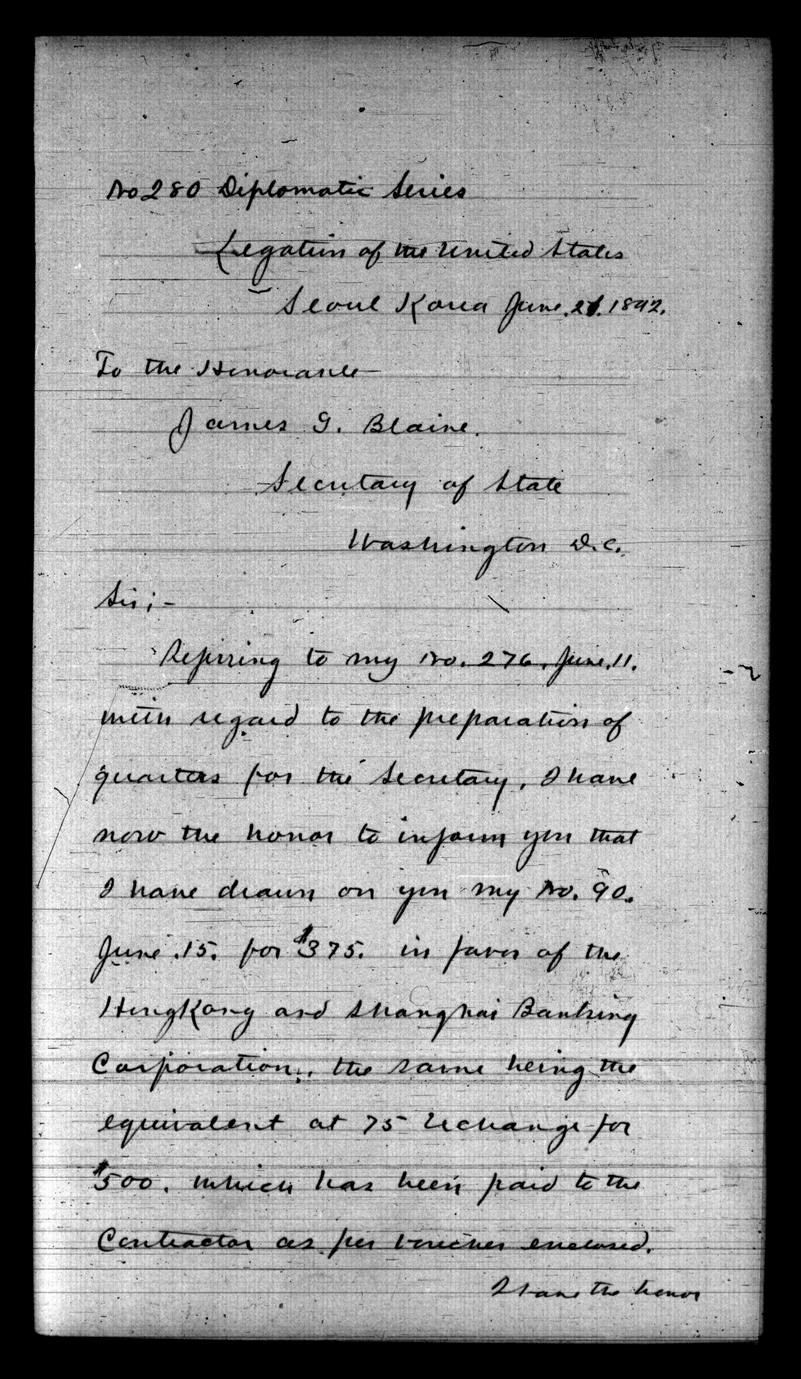 No 280 Diplomatic Series
Legation of the United States
Seoul Korea June. 21. 1892.
To the Honorable
James G. Blaine.
Secretary of State
Washington D.C.
Sir;-
Referring to my No. 276, June. 11.
with regard to the preparation of
quarters for the Secretary, I have
now the honor to inform you that
I have drawn on you my No. 90.
June. 15. for $375. in favor of the
HongKong and Shanghai Banking
Corporation., the same being the
equivalent at 75 Exchange for
$500. which has been paid to the
Contractor as per voucher enclosed.
I have the honor